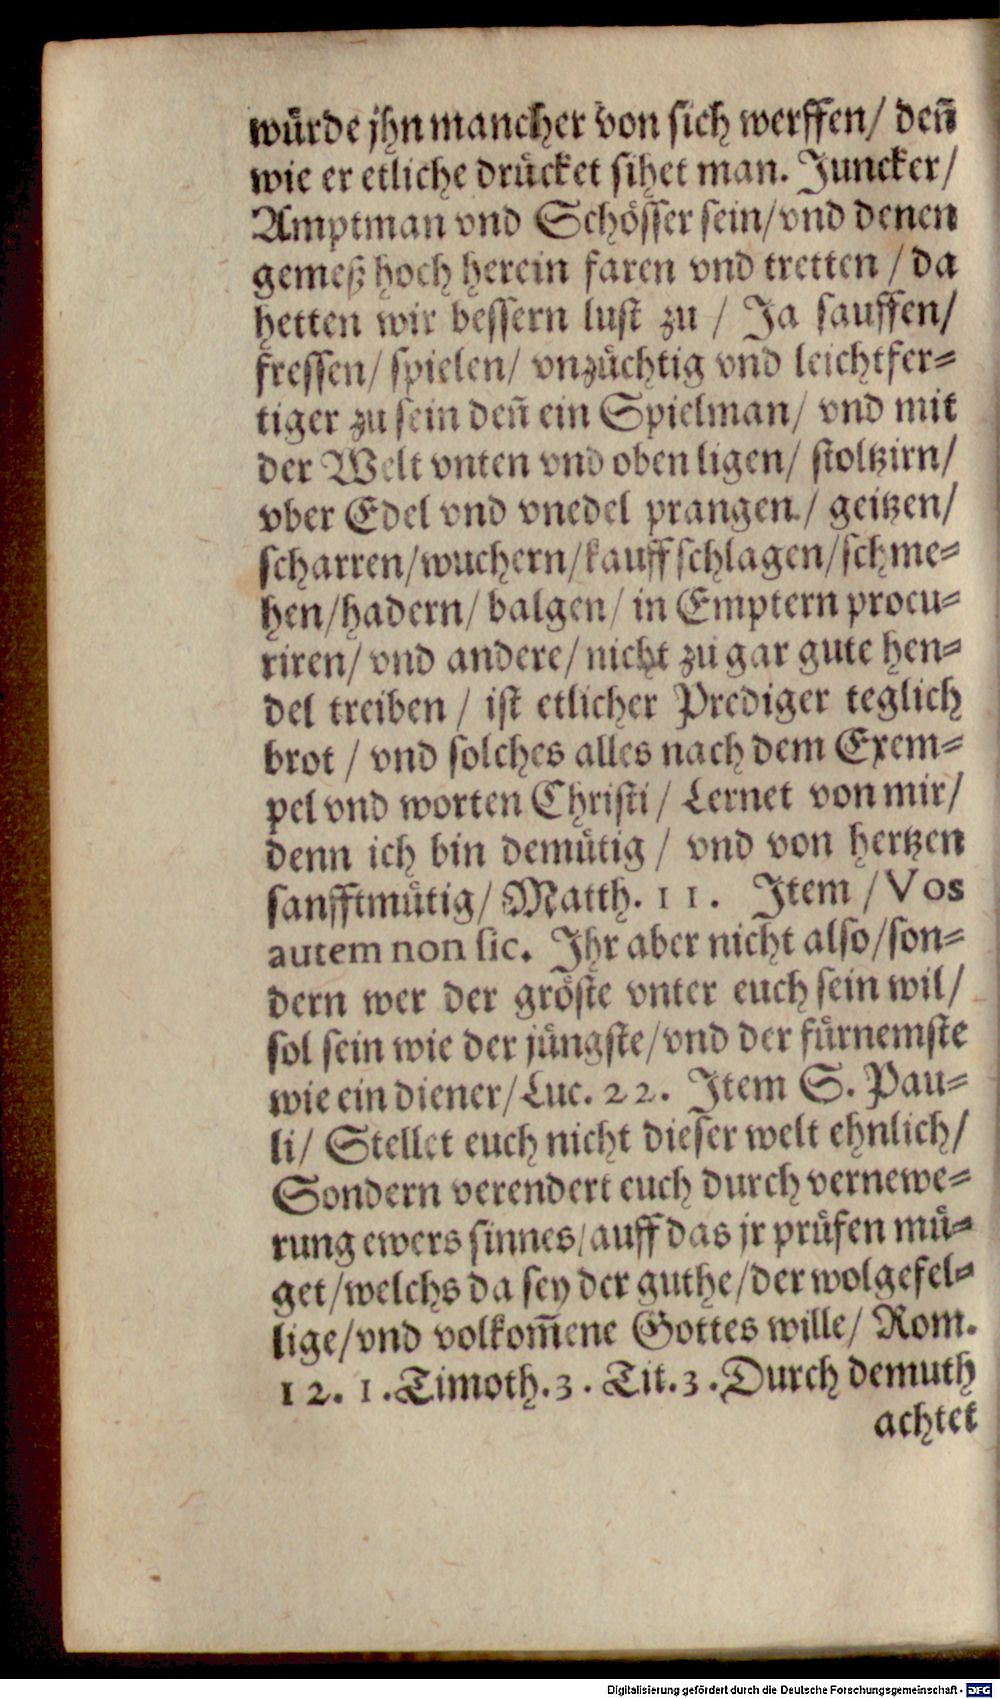 würde jhn mancher von sich werffen/ deñ
wie er etliche drücket sihet man. Juncker/
Amptman vnd Schösser sein/ vnd denen
gemeß hoch herein faren vnd tretten / da
hetten wir bessern lust zu / Ja sauffen/
fressen/ spielen/ vnzüchtig vnd leichtfer-
tiger zu sein deñ ein Spielman/ vnd mit
der Welt vnten vnd oben ligen/ stoltzirn/
vber Edel vnd vnedel prangen/ geitzen/
scharren/wuchern/kauffschlagen/schme-
hen/hadern/ balgen/ in Emptern procu-
riren/ vnd andere/ nicht zu gar gute hen-
del treiben / ist etlicher Prediger teglich
brot / vnd solches alles nach dem Exem-
pel vnd worten Christi/ Lernet von mir/
denn ich bin demütig / vnd von hertzen
sanfftmütig/ Matth. 11. Item / Vos
autem non sic. Ihr aber nicht also/son-
dern wer der gröste vnter euch sein wil/
sol sein wie der jüngste/vnd der fürnemste
wie ein diener/Luc. 22. Item S. Pau-
li/ Stellet euch nicht dieser welt ehnlich/
Sondern verendert euch durch vernewe-
rung ewers sinnes/auff das jr prüfen mü-
get/welchs da sey der guthe/der wolgefel-
lige/vnd volkom̃ene Gottes wille/ Rom.
12. 1. Timoth. 3. Tit. 3. Durch demuth
achtet
Digitalisierung gefördert durch die Deutsche Forschungsgemeinschaft - DFG